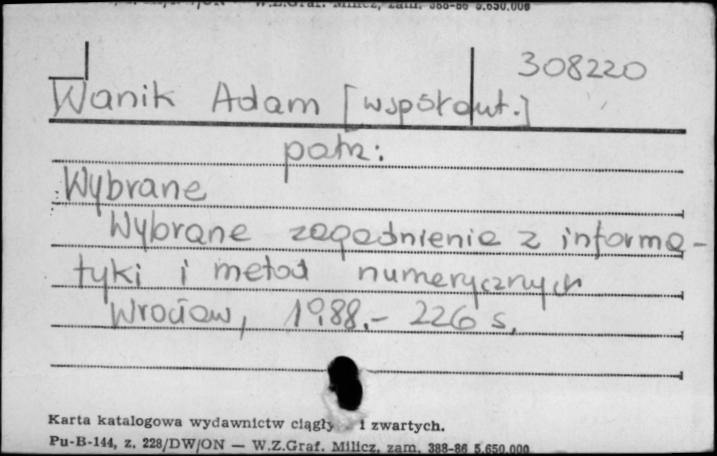 W.Z.Graf. Milicz, zam. 388-86 5.650.000
308220
Wanik Adam [współaut.]
patrz:
Wybrane
Wybrane zagadnienia z informa-
tyki i metod numerycznych
Wrocław, 1988.- 226 s.
Karta katalogowa wydawnictw ciągły i zwartych.
Pu-B-144, z. 228/DW/ON — W.Z.Graf. Milicz, zam. 388-86 5.650.000